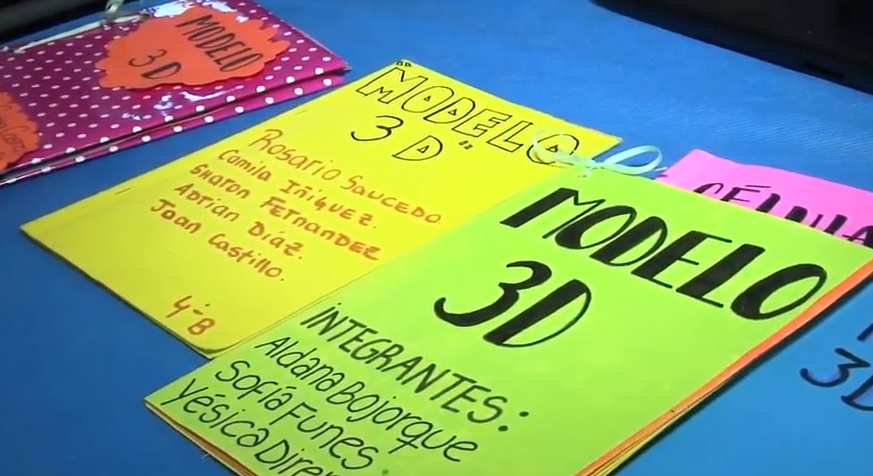 MODELO
3D
"MODELO"
3D
Rosario Saucedo
Camila Iñiguez.
Sharon Fernandez
Adrian Díaz.
Joan Castillo.
4-B
MODELO
3D
INTEGRANTES:
Aldana Bojorque
Sofía Funes.
Yésica
3D